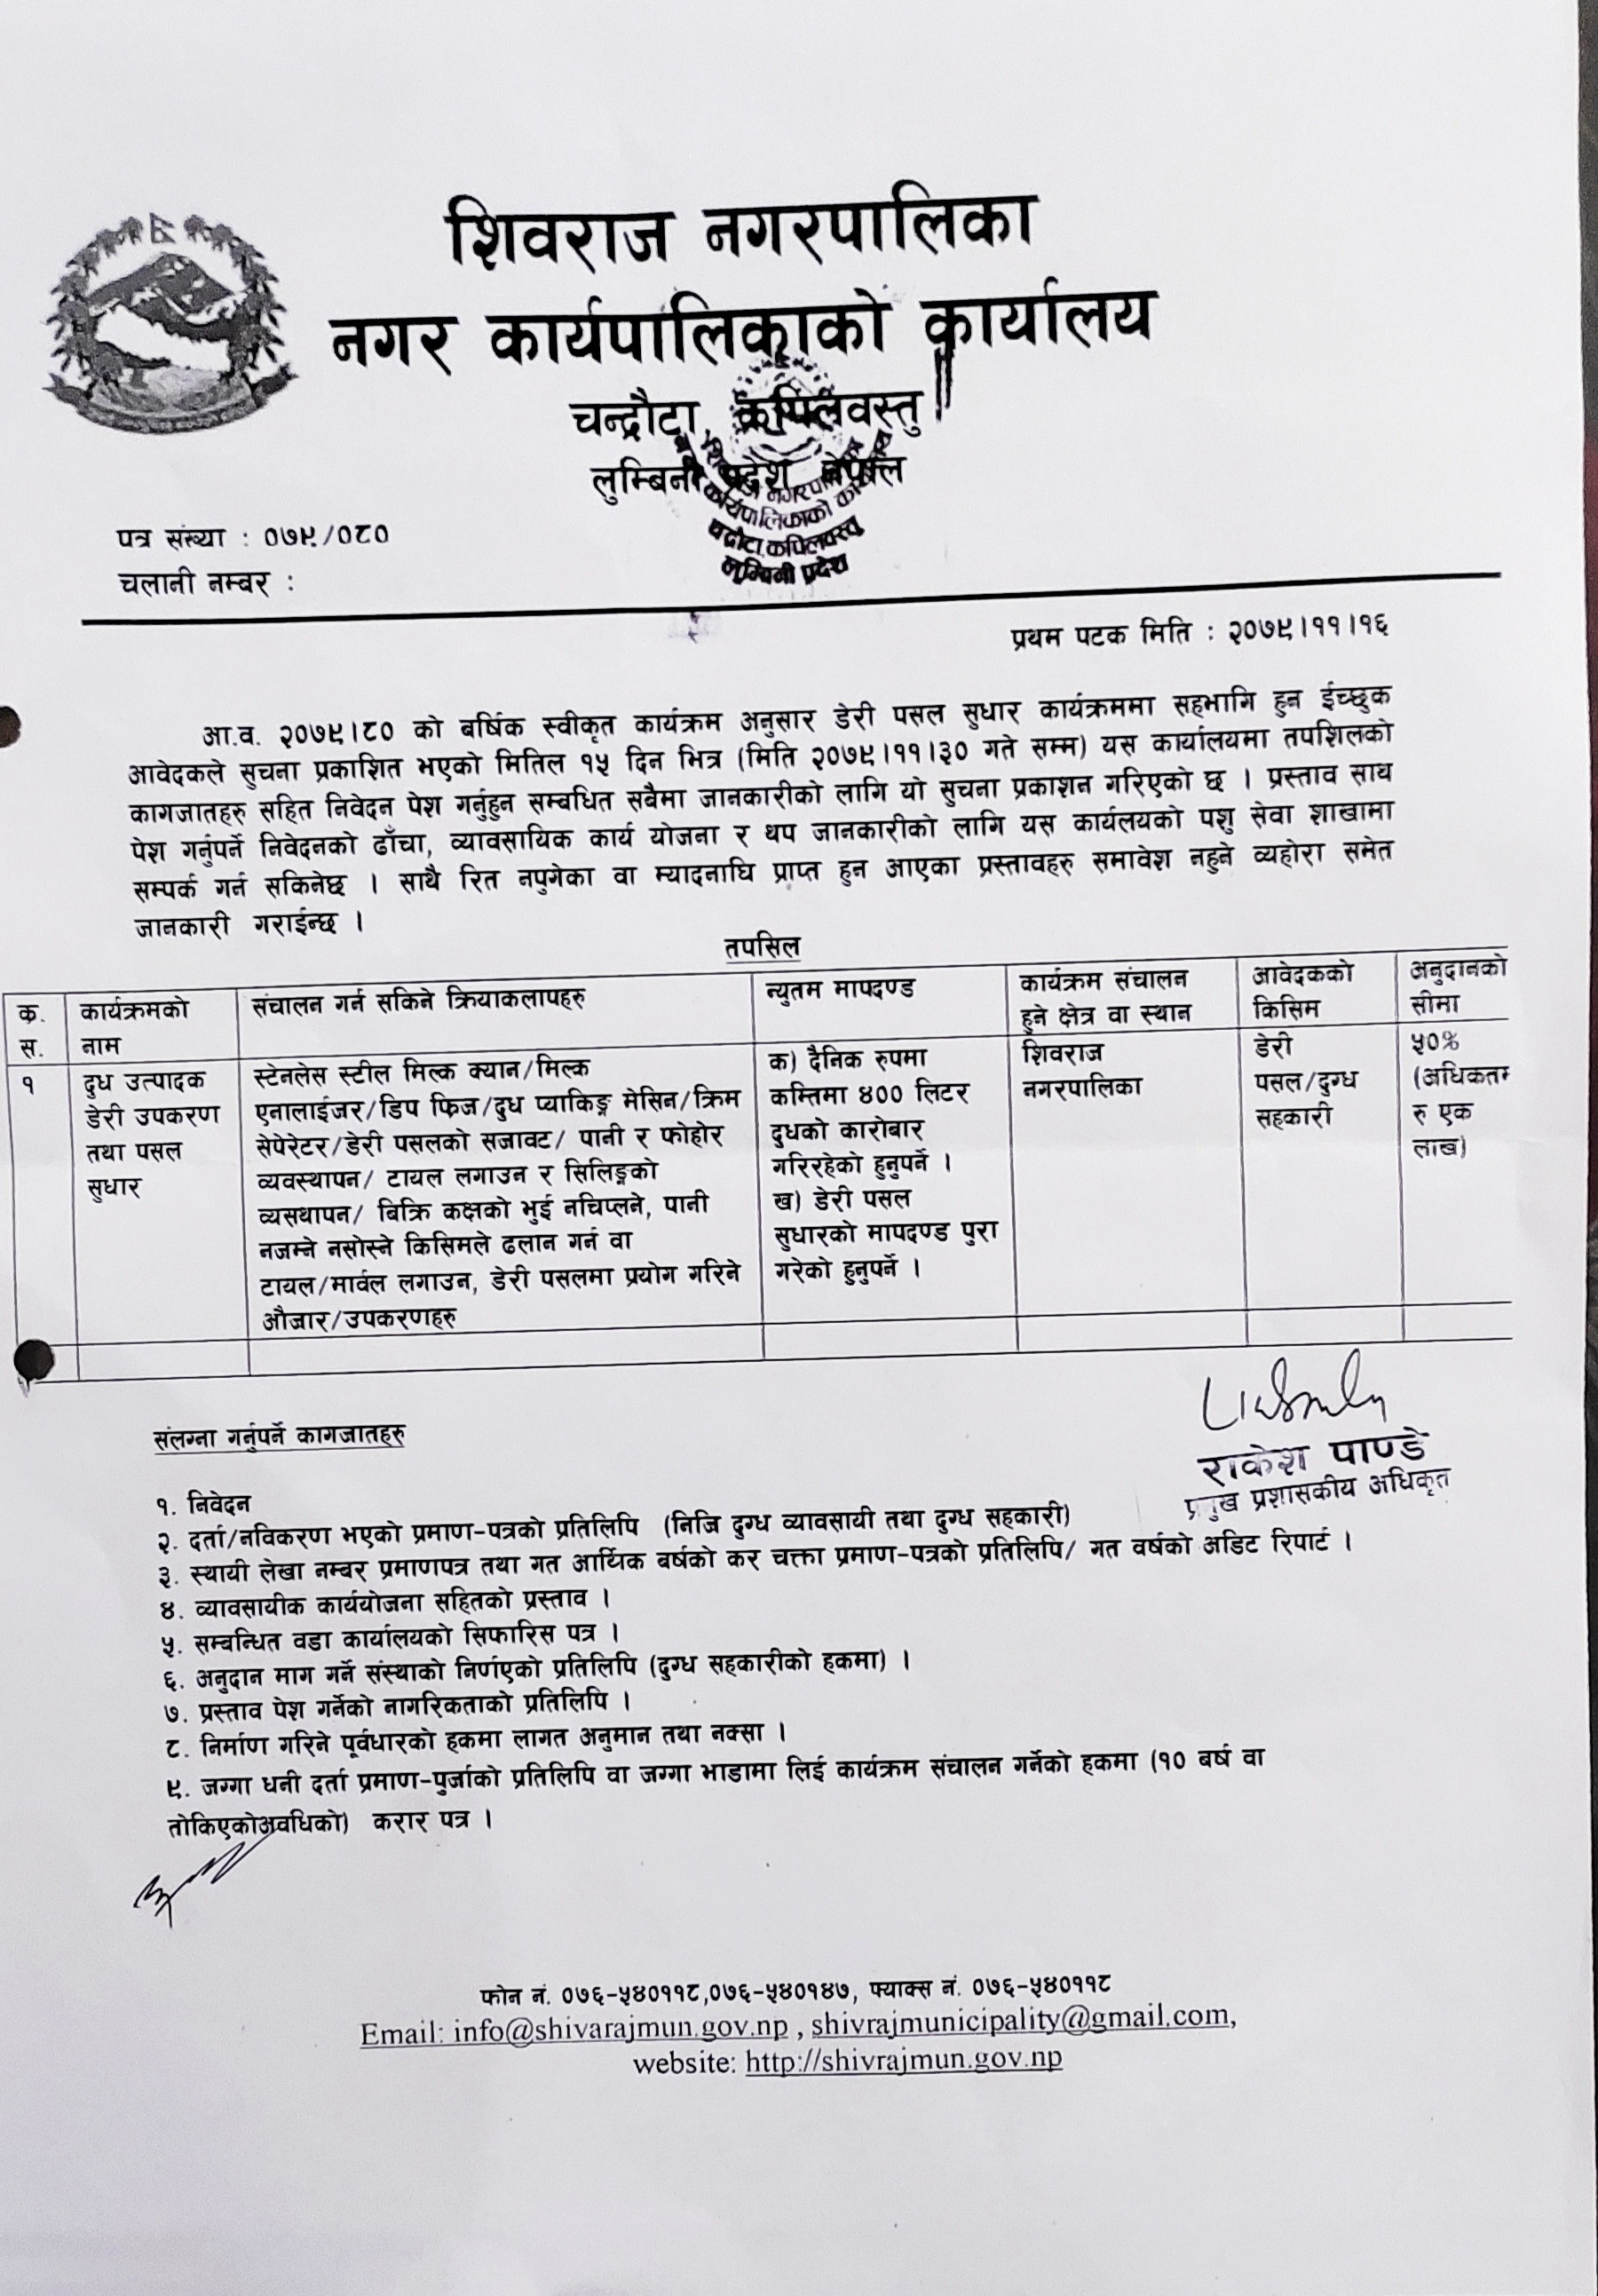 शिवराज नगरपालिका
नगर कार्यपालिकाको कार्यालय
चन्द्रौटा, कपिलवस्तु
लुम्बिनी प्रदेश नेपाल
नगरपा
कार्यपालिकाको का
चद्रौटा,कपिलवस्तु
लुम्बिनी प्रदेश
पत्र संख्या : ०७९/०८०
चलानी नम्बर :
प्रथम पटक मिति : २०७९।११।१६
आ.व. २०७९।८० को बर्षिक स्वीकृत कार्यक्रम अनुसार डेरी पसल सुधार कार्यक्रममा सहभागि हुन ईच्छुक
आवेदकले सुचना प्रकाशित भएको मितिल १५ दिन भित्र (मिति २०७९।११।३० गते सम्म) यस कार्यालयमा तपशिलको
कागजातहरु सहित निवेदन पेश गर्नुहुन सम्बधित सबैमा जानकारीको लागि यो सुचना प्रकाशन गरिएको छ । प्रस्ताव साथ
पेश गर्नुपर्ने निवेदनको ढाँचा, व्यावसायिक कार्य योजना र थप जानकारीको लागि यस कार्यलयको पशु सेवा शाखामा
सम्पर्क गर्न सकिनेछ । साथै रित नपुगेका वा म्यादनाघि प्राप्त हुन आएका प्रस्तावहरु समावेश नहुने व्यहोरा समेत
जानकारी गराईन्छ ।
तपसिल
क.स. कार्यक्रमको नाम संचालन गर्न सकिने क्रियाकलापहरु न्युतम मापदण्ड कार्यक्रम संचालन हुने क्षेत्र वा स्थान आवेदकको किसिम अनुदानको सीमा
१ दुध उत्पादक डेरी उपकरण तथा पसल सुधार
स्टेनलेस स्टील मिल्क क्यान/मिल्क
एनालाईजर/डिप फ्रिज/दुध प्याकिङ्ग मेसिन/क्रिम
सेपेरेटर/डेरी पसलको सजावट/ पानी र फोहोर
व्यवस्थापन/ टायल लगाउन र सिलिङ्गको
व्यसथापन/ बिक्रि कक्षको भुई नचिप्लने, पानी
नजम्ने नसोस्ने किसिमले ढलान गर्न वा
टायल/मार्वल लगाउन, डेरी पसलमा प्रयोग गरिने
औजार/उपकरणहरु
क) दैनिक रुपमा
कम्तिमा ४०० लिटर
दुधको कारोबार
गरिरहेको हुनुपर्ने ।
ख) डेरी पसल
सुधारको मापदण्ड पुरा
गरेको हुनुपर्ने ।
शिवराज
नगरपालिका
डेरी
पसल/दुग्ध
सहकारी
५०%
(अधिकतम
रु एक
लाख)
संलग्ना गर्नुपर्ने कागजातहरु
राकेश पाण्डे
प्रमुख प्रशासकीय अधिकृत
१. निवेदन
२. दर्ता/नविकरण भएको प्रमाण-पत्रको प्रतिलिपि (निजि दुग्ध व्यावसायी तथा दुग्ध सहकारी)
३. स्थायी लेखा नम्बर प्रमाणपत्र तथा गत आर्थिक बर्षको कर चक्ता प्रमाण-पत्रको प्रतिलिपि/ गत वर्षको अडिट रिपार्ट ।
४. व्यावसायीक कार्ययोजना सहितको प्रस्ताव ।
५. सम्बन्धित वडा कार्यालयको सिफारिस पत्र ।
६. अनुदान माग गर्ने संस्थाको निर्णएको प्रतिलिपि (दुग्ध सहकारीको हकमा) ।
७. प्रस्ताव पेश गर्नेको नागरिकताको प्रतिलिपि ।
८. निर्माण गरिने पूर्वधारको हकमा लागत अनुमान तथा नक्सा ।
९. जग्गा धनी दर्ता प्रमाण-पुर्जाको प्रतिलिपि वा जग्गा भाडामा लिई कार्यक्रम संचालन गर्नेको हकमा (१० बर्ष वा
तोकिएकोअवधिको) करार पत्र ।
फोन नं. ०७६-५४०११८,०७६-५४०१४७, फ्याक्स नं. ०७६-५४०११८
Email: info@shivarajmun.gov.np , shivrajmunicipality@gmail.com,
website: http://shivrajmun.gov.np